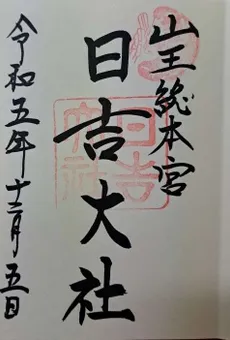 山王総本宮
日吉大社
令和五年十二月五日
日吉大社